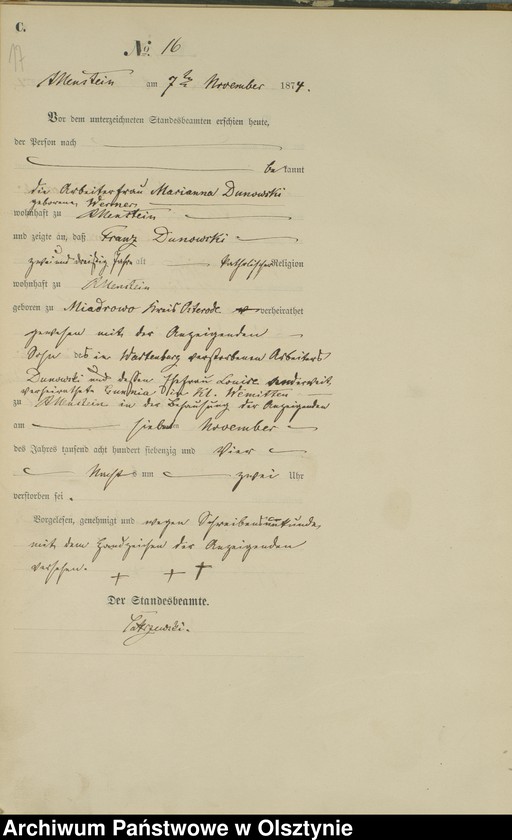 C.
17
No. 16
Allenstein am 7ten November 1874.
Vor dem unterzeichneten Standesbeamten erschien heute,
der Person nach
bekannt
die Arbeiterfrau Marianna Dunowski
geborene Werner
wohnhaft zu Allenstein
und zeigte an, daß Franz Dunowski
zwei und dreißig Jahre alt katholischer Religion
wohnhaft zu Allenstein
geboren zu Miadrowo Kreis Osterode verheirathet
gewesen mit der Anzeigenden
Sohn des in Wartenburg verstorbenen Arbeiters
Dunowski und dessen Ehefrau Louise anderweit
verheirathete in Kl.
zu Allenstein in der Behausung der Anzeigenden
am sieben November
des Jahres tausend acht hundert siebenzig und vier
Nachts um zwei Uhr
verstorben sei.
Vorgelesen, genehmigt und wegen Schreibensunkunde
mit dem Handzeichen der Anzeigenden
versehen.
+ + +
Der Standesbeamte.
Archiwum Państwowe w Olsztynie